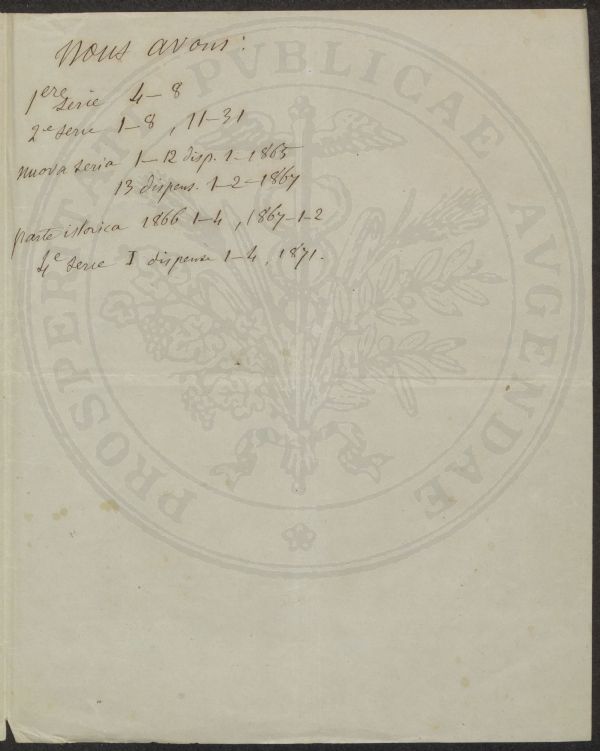 Nous avons:
1ere Serie 4–8
2e Serie 1–8, 11–31
nuova Seria 1–12 disp. 1–1865
13 dispens. 1–2–1867
parte istorica 1866 1–4, 1867–1–2
4e Serie I dispense 1–4, 1871.
PROSPERITATI PVBLICAE AVGENDAE